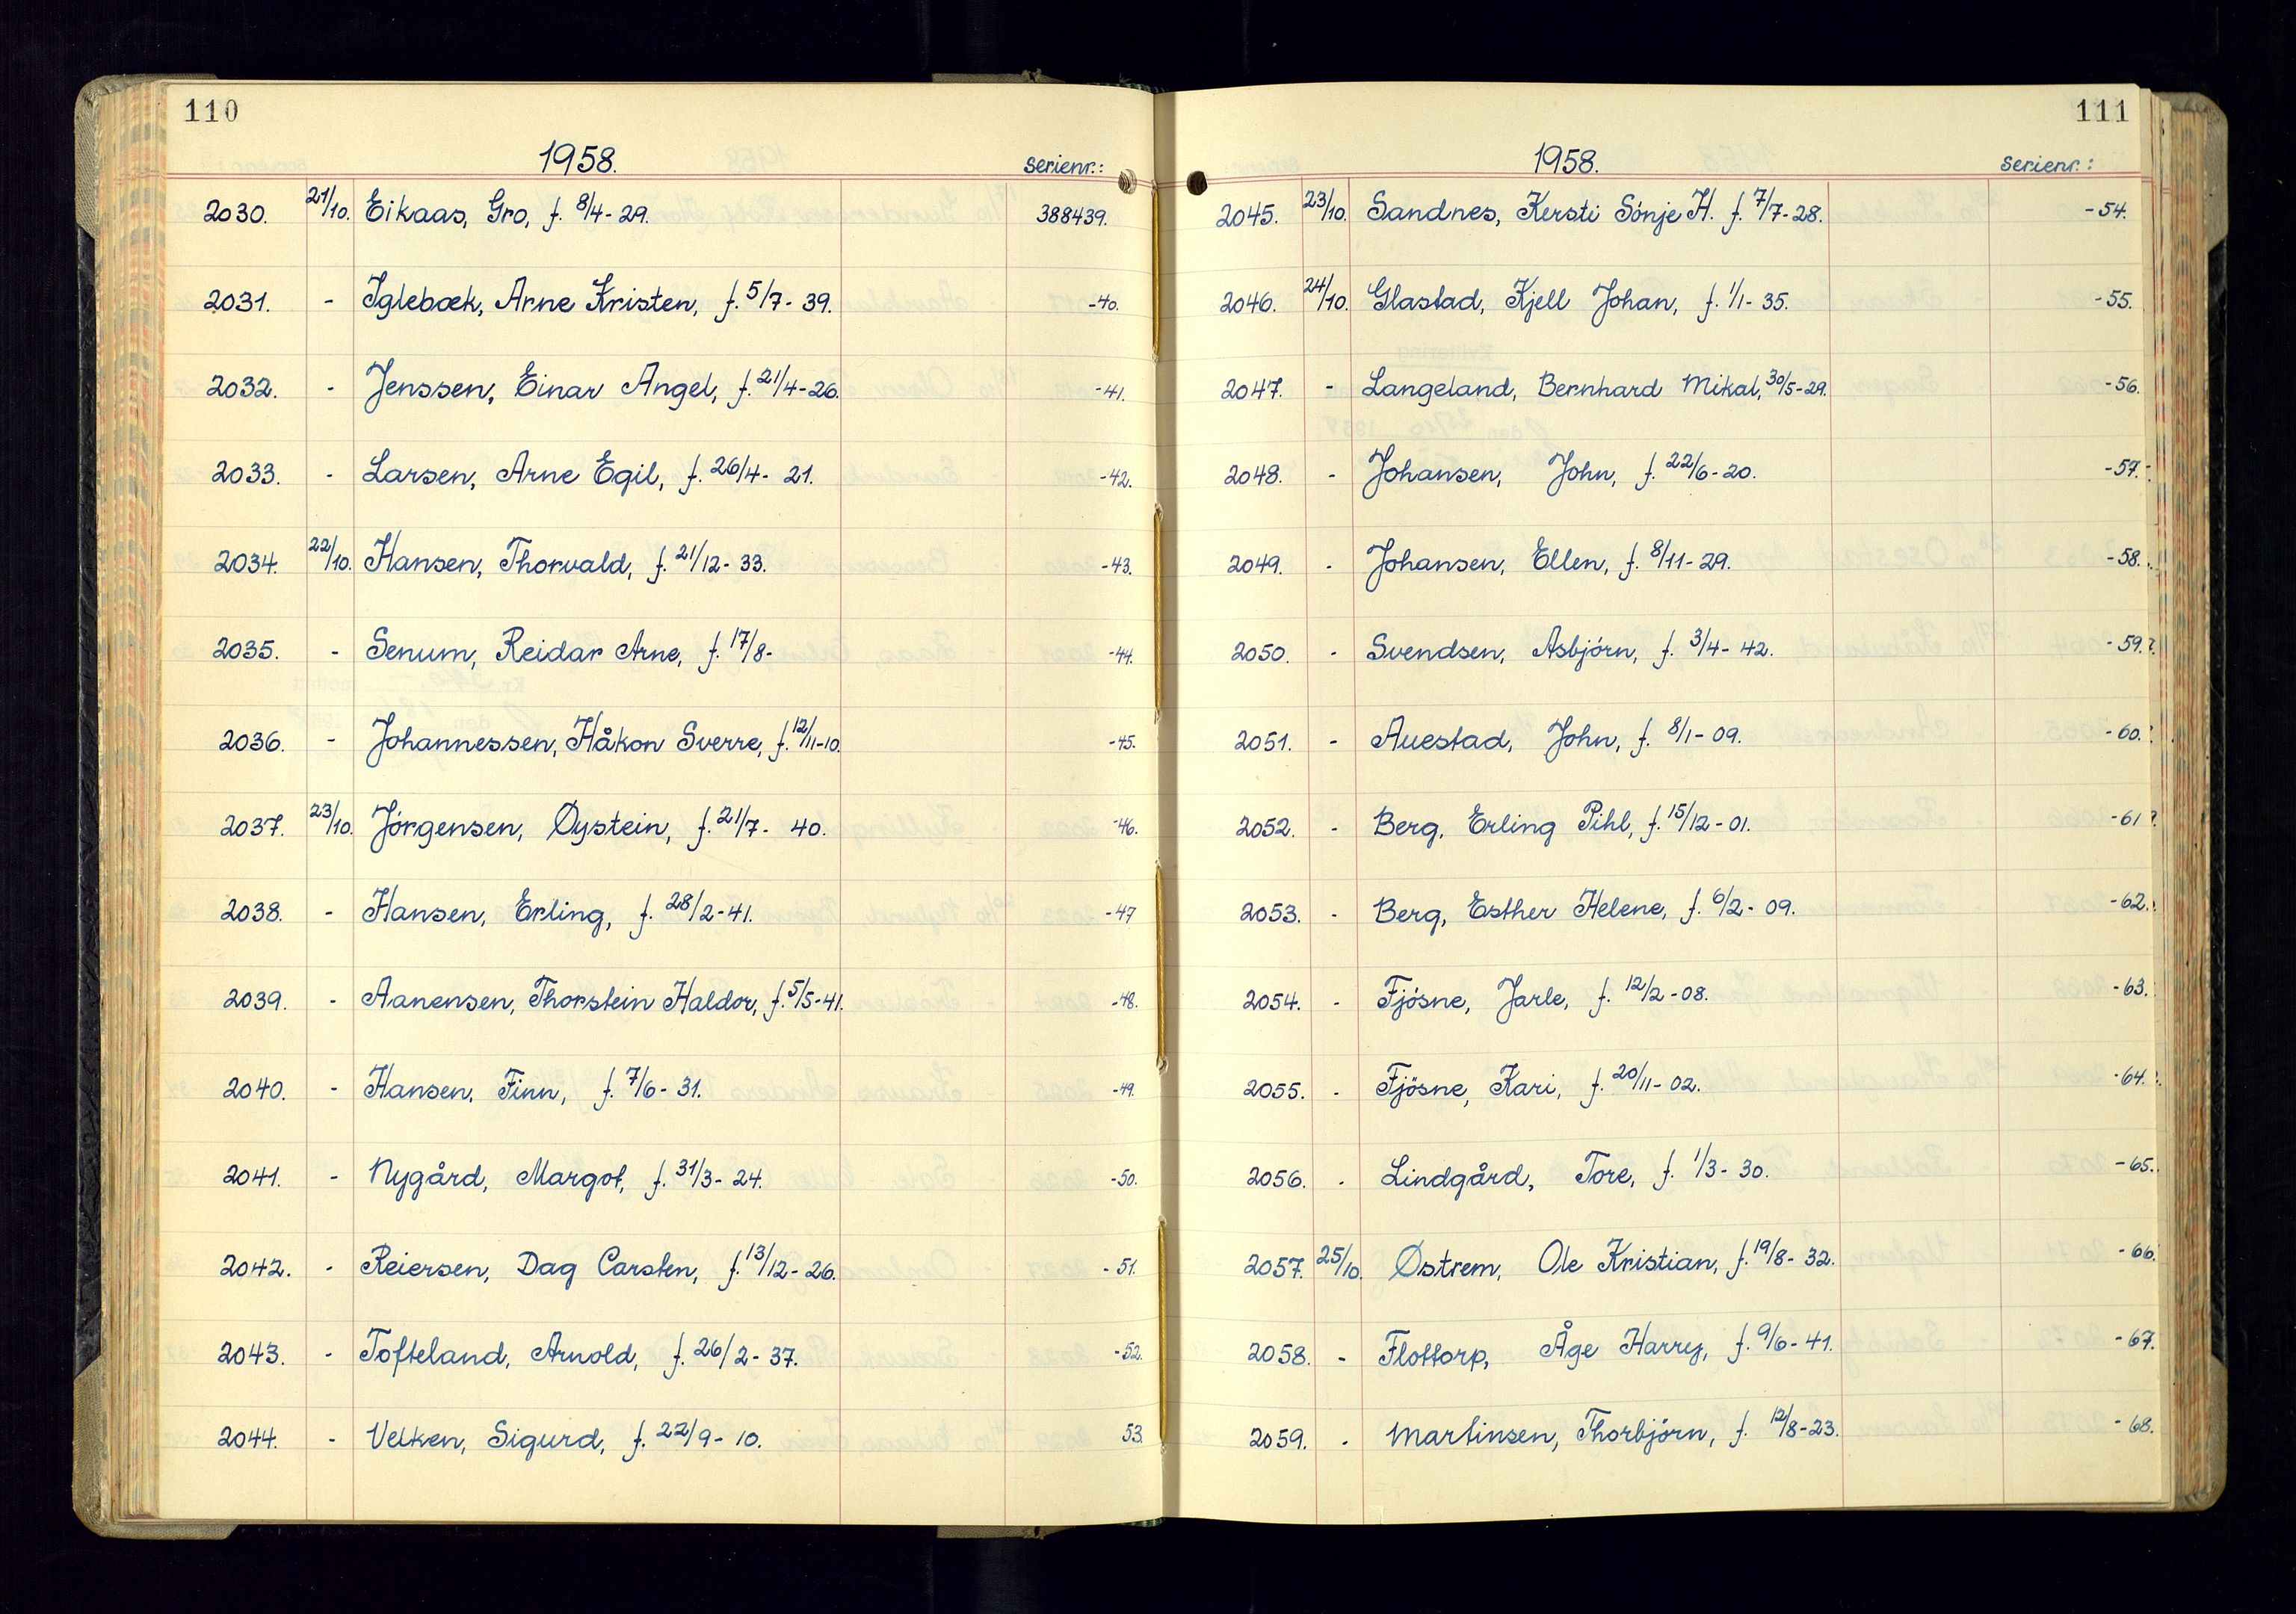 110
1958.
serienr.:
2030. 21/10. Eikaas, Gro, f. 8/4-29. 388439.
2031. - Iglebæk, Arne Kristen, f. 5/7-39. -40.
2032. - Jenssen, Einar Angel, f. 21/4-26. -41.
2033. - Larsen, Arne Egil, f. 26/4-21. -42.
2034. 22/10. Hansen, Thorvald, f. 21/12-33. -43.
2035. - Senum, Reidar Arne, f. 17/8- -44.
2036. - Johannessen, Håkon Sverre, f. 12/11-10. -45.
2037. 23/10. Jórgensen, Øystein, f. 21/7-40. -46.
2038. - Hansen, Erling, f. 28/2-41. -47
2039. - Aanensen, Thorstein Haldor, f. 5/5-41. -48.
2040. - Hansen, Finn, f. 7/6-31. -49.
2041. - Nygård, Margot, f. 31/3-24. -50.
2042. - Reiersen, Dag Carsten, f. 13/12-26. -51.
2043. - Tofteland, Arnold, f. 26/2-37. -52.
2044. - Velken, Sigurd, f. 22/9-10. 53.
111
1958.
serienr.:
2045. 23/10. Sandnes, Kersti Sónje H. f. 7/7-28. -54.
2046. 24/10. Glastad, Kjell Johan, f. 1/1-35. -55.
2047. - Langeland, Bernhard Mikal, 30/5-29. -56.
2048. - Johansen, John, f. 22/6-20. -57.
2049. - Johansen, Ellen, f. 8/11-29. -58.
2050. - Svendsen, Asbjórn, f. 3/4-42. -59.
2051. - Auestad, John, f. 8/1-09. -60.
2052. - Berg, Erling Pihl, f. 15/12-01. -61
2053. - Berg, Esther Helene, f. 6/2-09. -62.
2054. - Fjósne, Jarle, f. 12/2-08. -63.
2055. - Fjösne, Kari, f. 20/11-02. -64.
2056. - Lindgård, Tore, f. 1/3-30. -65.
2057. 25/10. Østrem, Ole Kristian, f. 19/8-32. -66.
2058. - Flottorp, Åge Harry, f. 9/6-41. -67.
2059. - Martinsen, Thorbjórn, f. 12/8-23. -68.